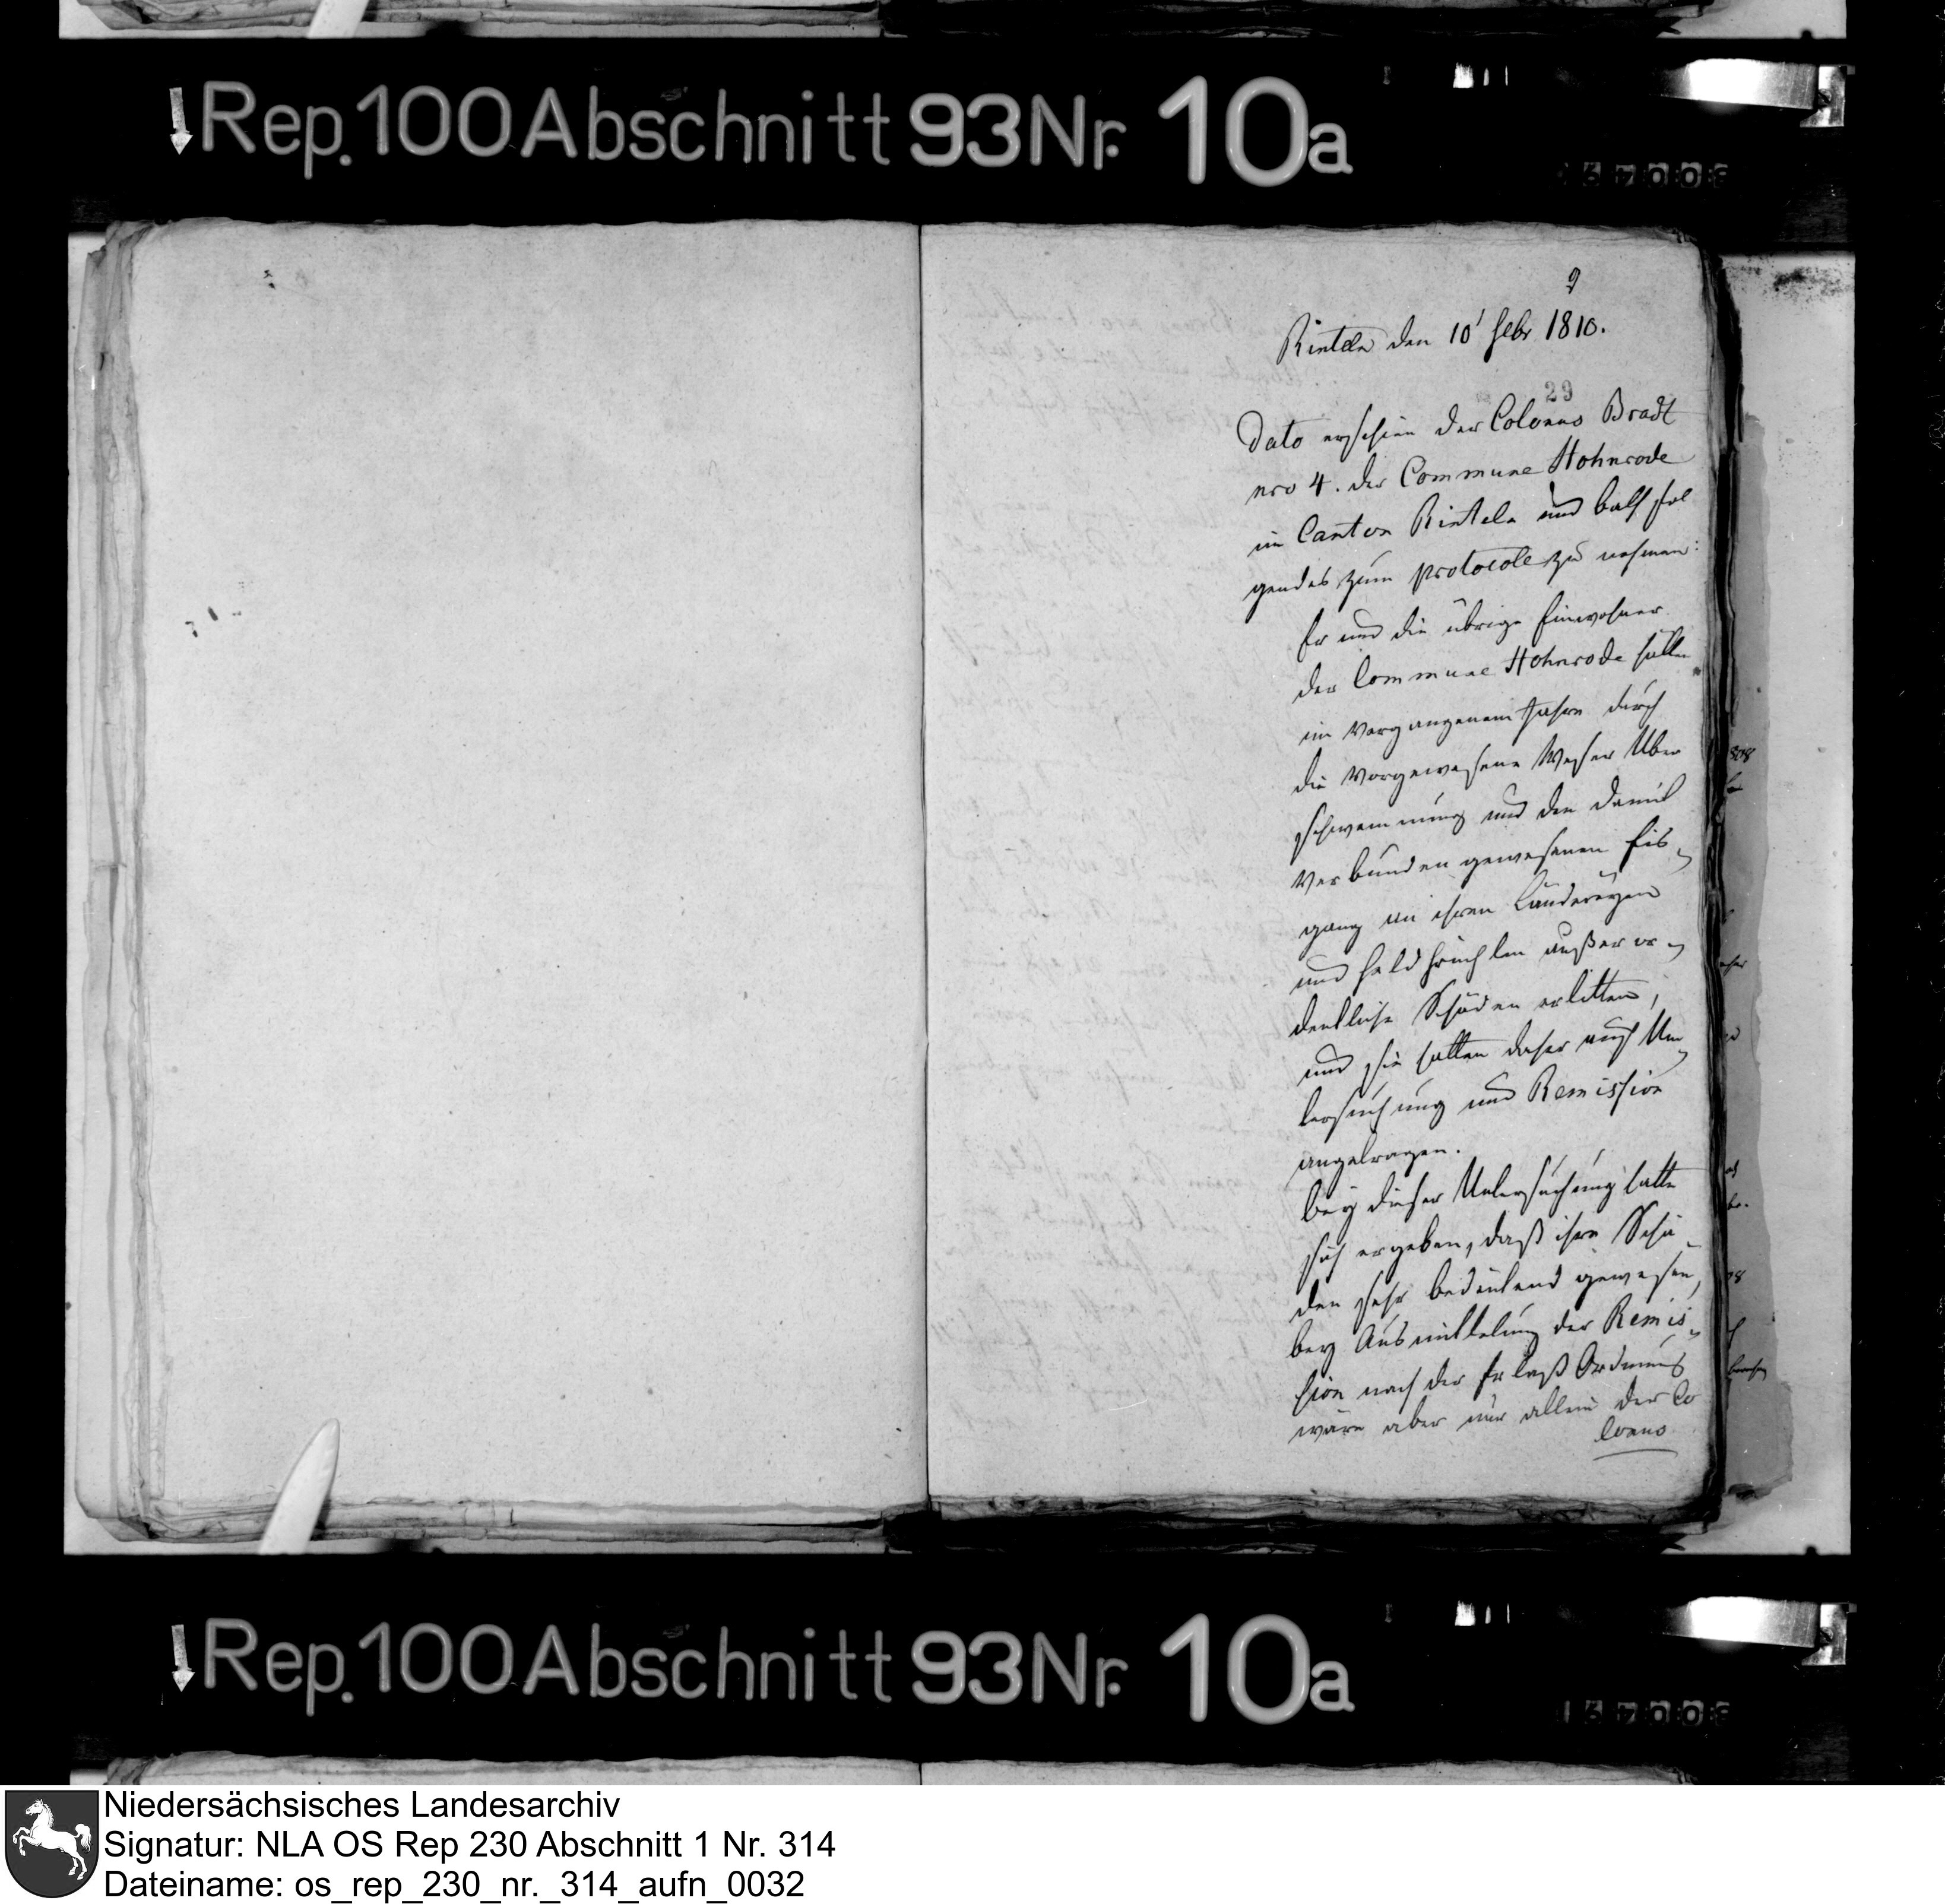 Rep. 100 Abschnitt 93 Nr. 10a
9
Rinteln den 10' Febr 1810.
29
Dato erschien der Colonus Bradt
nro 4. der Commune Hohnrode
im Canton Rinteln und bath fol
gendes zum protocolle zu nehmen:
Er und die übrige Einwohner
der Commune Hohnrode hätten
im vergangenem Jahre durch
die vorgewesene Weser Über
schwemmung und den damit
verbunden gewesenen Eis-
gang an ihren Ländereyen
und Feldfrüchten außeror-
dentliche Schäden erlitten,
und sie hätten daher auf Un-
tersuchung und Remission
angetragen.
bey dieser Untersuchung hätte
sich ergeben, daß ihre Schä-
den sehr bedeutend gewesen,
bey Ausmittelung der Remis-
sion nach der Erlaß Ordnung
wäre aber nur allein der Co
lonus
Rep. 100 Abschnitt 93 Nr. 10a
Niedersächsisches Landesarchiv
Signatur: NLA OS Rep 230 Abschnitt 1 Nr. 314
Dateiname: os_rep_230_nr._314_aufn_0032